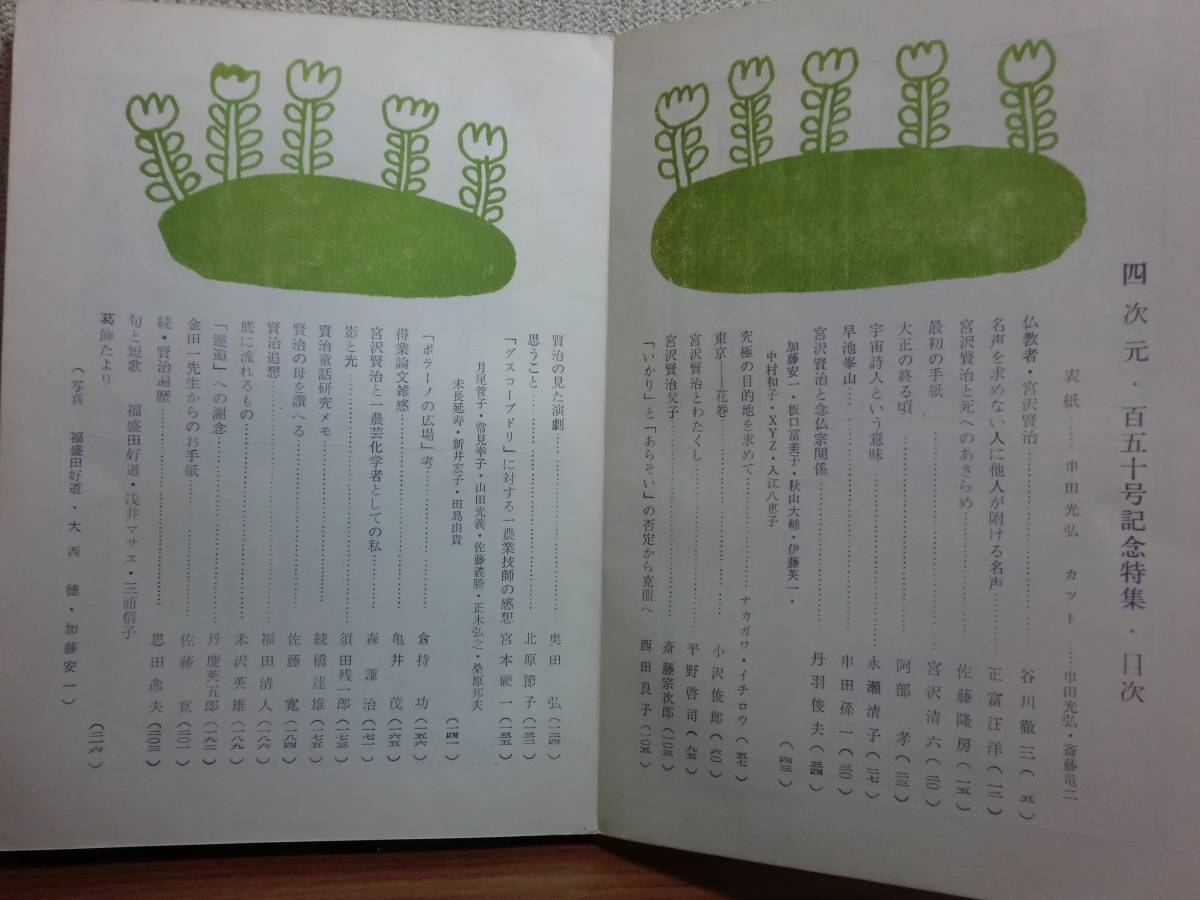 四次元・百五十号記念特集・目次
表紙……串田光弘 カット……串田光弘・斎藤竜二
仏教者・宮沢賢治……谷川徹三(五)
名声を求めない人に他人が附ける名声……正富汪洋(一二)
宮沢賢治と死へのあきらめ……佐藤隆房(一五)
最初の手紙……宮沢清六(二〇)
大正の終る頃……阿部孝(二三)
宇宙詩人という意味……永瀬清子(二七)
早池峯山……串田孫一(三〇)
宮沢賢治と念仏宗関係……丹羽俊夫(三四)
加藤安一・坂口冨美子・秋山大輔・伊藤英一・
中村和子・XYZ・入江八恵子(四三)
究極の目的地を求めて……ナカガワ・イチロウ(五七)
東京——花巻……小沢俊郎(六〇)
宮沢賢治とわたくし……平野啓司(九五)
宮沢賢治父子……斎藤宗次郎(一〇三)
「いかり」と「あらそい」の否定から克服へ 西田良子(一〇五)
賢治の見た演劇……奥田弘(一二四)
思うこと……北原節子(一三二)
「グスコーブドリ」に対する一農業技師の感想 宮本硬一(一三五)
月尾菅子・常見幸子・山田光義・佐藤義勝・正木弘之・桑原邦夫
末長延寿・新井宏子・田島由貴(一四一)
「ポラーノの広場」考……倉持功(一五六)
得業論文雑感……亀井茂(一六五)
宮沢賢治と一農芸化学者としての私……森謙治(一七一)
影と光……須田残一郎(一七三)
賢治童話研究メモ……続橋達雄(一七五)
賢治の母を讃へる……佐藤寛(一八四)
賢治追想……福田清人(一八六)
底に流れるもの……米沢英雄(一八九)
「邂逅」への謝念……丹慶英五郎(一九二)
金田一先生からのお手紙……佐藤寛(二〇一)
続・賢治遍歴……恩田逸夫(二〇三)
句と短歌 福盛田好道・浅井マサエ・三浦信子
葛飾たより(二一六)
(写真 福盛田好道・大西徳・加藤安一)